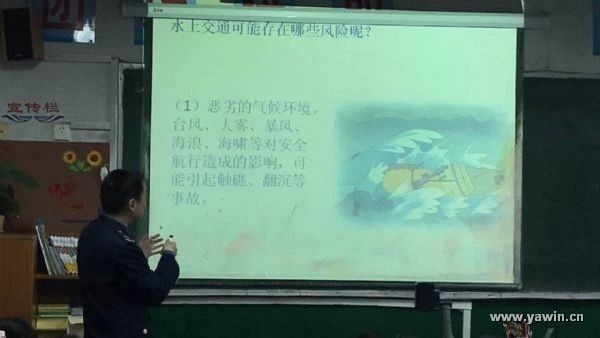 水上交通可能存在哪些风险呢？
宣传栏
（1）恶劣的气候环境。
台风、大雾、暴风、
海浪、海啸等对安全
航行造成的影响，可
能引起触礁、翻沉等
事故。
吧
www.yawin.cn